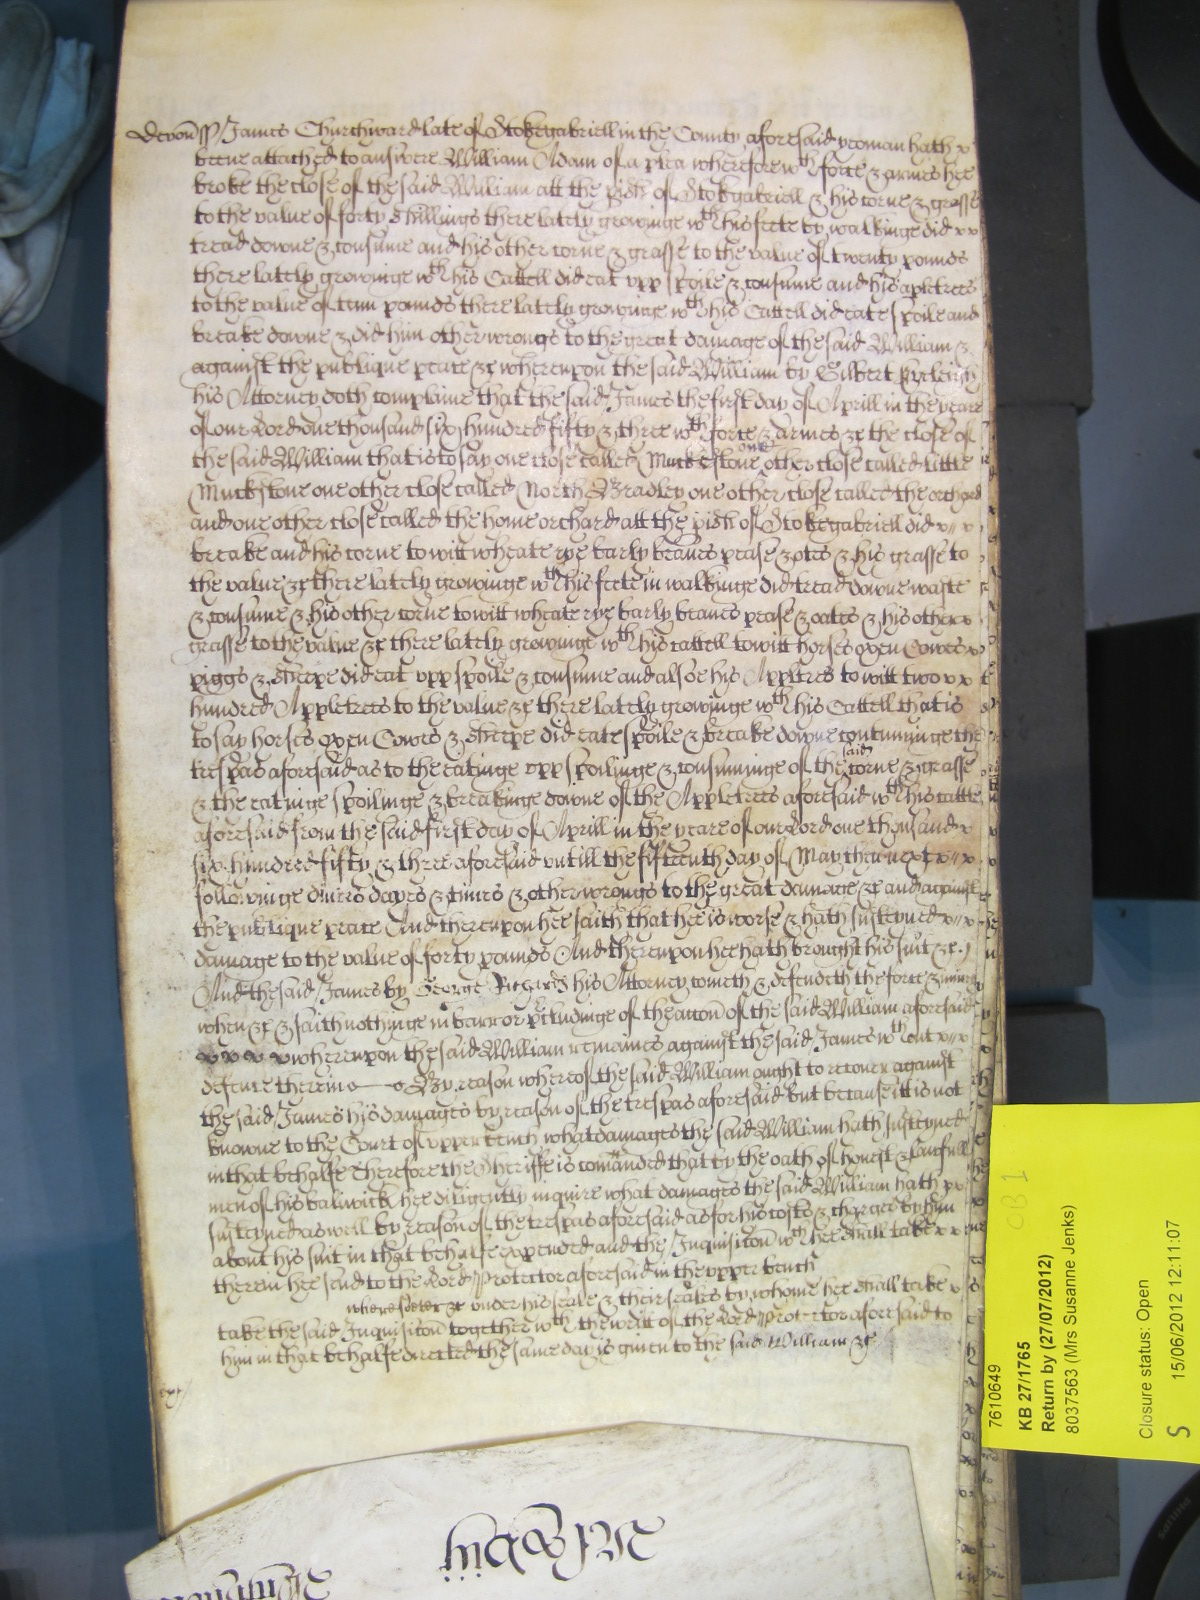 Devon ss James Churchward late of Stokegabriell in the County aforesaid yeoman hath x
beene attached to answere William Adam of a plea wherefore wth force & armes hee
broke the close of the said William att the pish of Stokgabriell & his corne & grasse
to the value of forty shillings there lately growinge wth his feete by walkinge did xx
tread downe & consume and his other corne & grasse to the value of twenty pounds
there lately growinge wth his Cattell did eat upp spoile & consume and his apletrees
to the value of tenn pounds there lately growinge wth his Cattell did eate spoile and
breake downe & did him other wrongs to the great damage of the said William &
against the publique peace &c whereupon the said William by Gilbert
his Attorney doth complaine that the said James the first day of Aprill in the yeare
of our Lord one thousand six hundred fifty & three wth force & armes &c the close of
the said William that is to say one close called Muckstone one other close called little
Muckstone one other close called North Bradley one other close called the orchard
and one other close called the home orchard att the pish of Stokegabriell did x
breake and his corne to witt wheate rye barly beanes pease & otes & his grasse to
the value &c there lately growinge wth his feete in walkinge did tread downe waste
& consume & his other corne to witt wheate rye barly beanes pease & oates & his other x
grasse to the value &c there lately growinge wth his cattell to witt horses oxen Cowes x
piggs & sheepe did eat upp spoile & consume and alsoe his Appletrees to witt two xx
hundred Appletrees to the value &c there lately growinge wth his Cattell that is
to say horses oxen Cowes & sheepe did eate spoile & breake downe contynuinge the
trespas aforesaid as to the eatinge upp spoilinge & consuminge of the said corne & grasse
& the eatinge spoilinge & breakinge downe of the Appletrees aforesaid wth his cattle
aforesaid from the said first day of Aprill in the yeare of our Lord one thousand x
six hundred fifty & three aforesaid untill the fifteenth day of May then next x
followinge divers dayes & times & other wrongs to the great damage &c and against
the publique peace And thereupon hee saith that hee is worse & hath susteyned x
damage to the value of forty pounds And thereupon hee hath brought his suit &c
And the said James by George Richards his Attorney cometh & defendeth the force &
when &c & saith nothinge in barr or pcludinge of the accon of the said William aforesaid
whereupon the said William remaines against the said James wthout x
defence therein By reason whereof the said William ought to recover against
the said James his damages by reason of the trespas aforesaid but because it is not
knowne to the Court of upper bench what damages the said William hath susteyned
in that behalfe Therefore the Sheriffe is comanded that by the oath of honest & lawfull
men of his baliwick hee diligently inquire what damages the said William hath xx
susteyned as well by reason of the trespas aforesaid as for his costs & charges by him
about his suit in that behalfe expended and the Inquisicon wch hee shall take xx
therein hee send to the Lord Protector aforesaid in the upper bench
wheresoever &c under his seale & their seales by whome hee shall take x
take the said Inquisicon together wth the writt of the Lord Protector aforesaid to
him in that behalfe directed the same day is given to the said William &c
7610649
KB 27/1765
Return by (27/07/2012)
8037563 (Mrs Susanne Jenks)
OB 1
Closure status: Open
15/06/2012 12:11:07
S